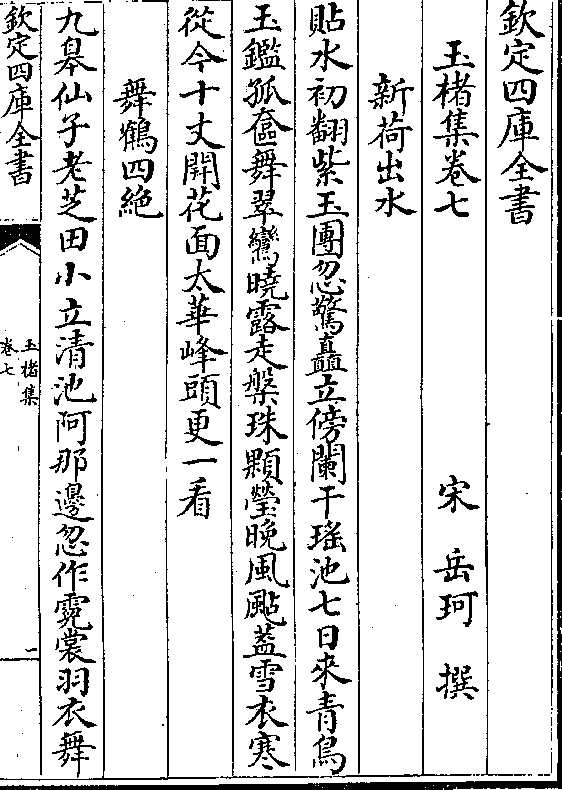 欽定四庫全書
玉楮集卷七
宋 岳珂 撰
新荷出水
貼水初翻紫玉團忽驚矗立傍闌干瑤池七日來青鳥
玉鑑孤奩舞翠鸞曉露走槃珠顆瑩晚風颭葢雪衣寒
從今十丈開花面太華峰頭更一看
舞鶴四絶
九皋仙子老芝田小立清池阿那邊忽作霓裳羽衣舞
欽定四庫全書
玉楮集
卷七
一